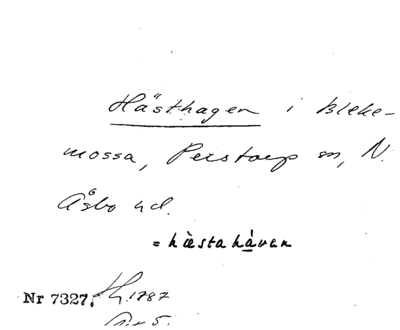 Hästhagen i Bleke-
mossa, Perstorp sn, N.
Åsbo hd.
= hæ̀stahávan
Nr 7327. 1787